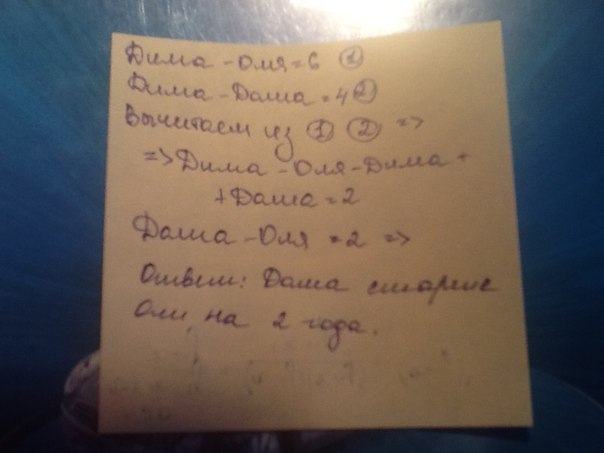 Дима - Оля = 6 ①
Дима - Даша = 4 ②
Вычитаем из ① ② =>
=> Дима - Оля - Дима +
+ Даша = 2
Даша - Оля = 2 =>
Ответ: Даша старше
Оли на 2 года.